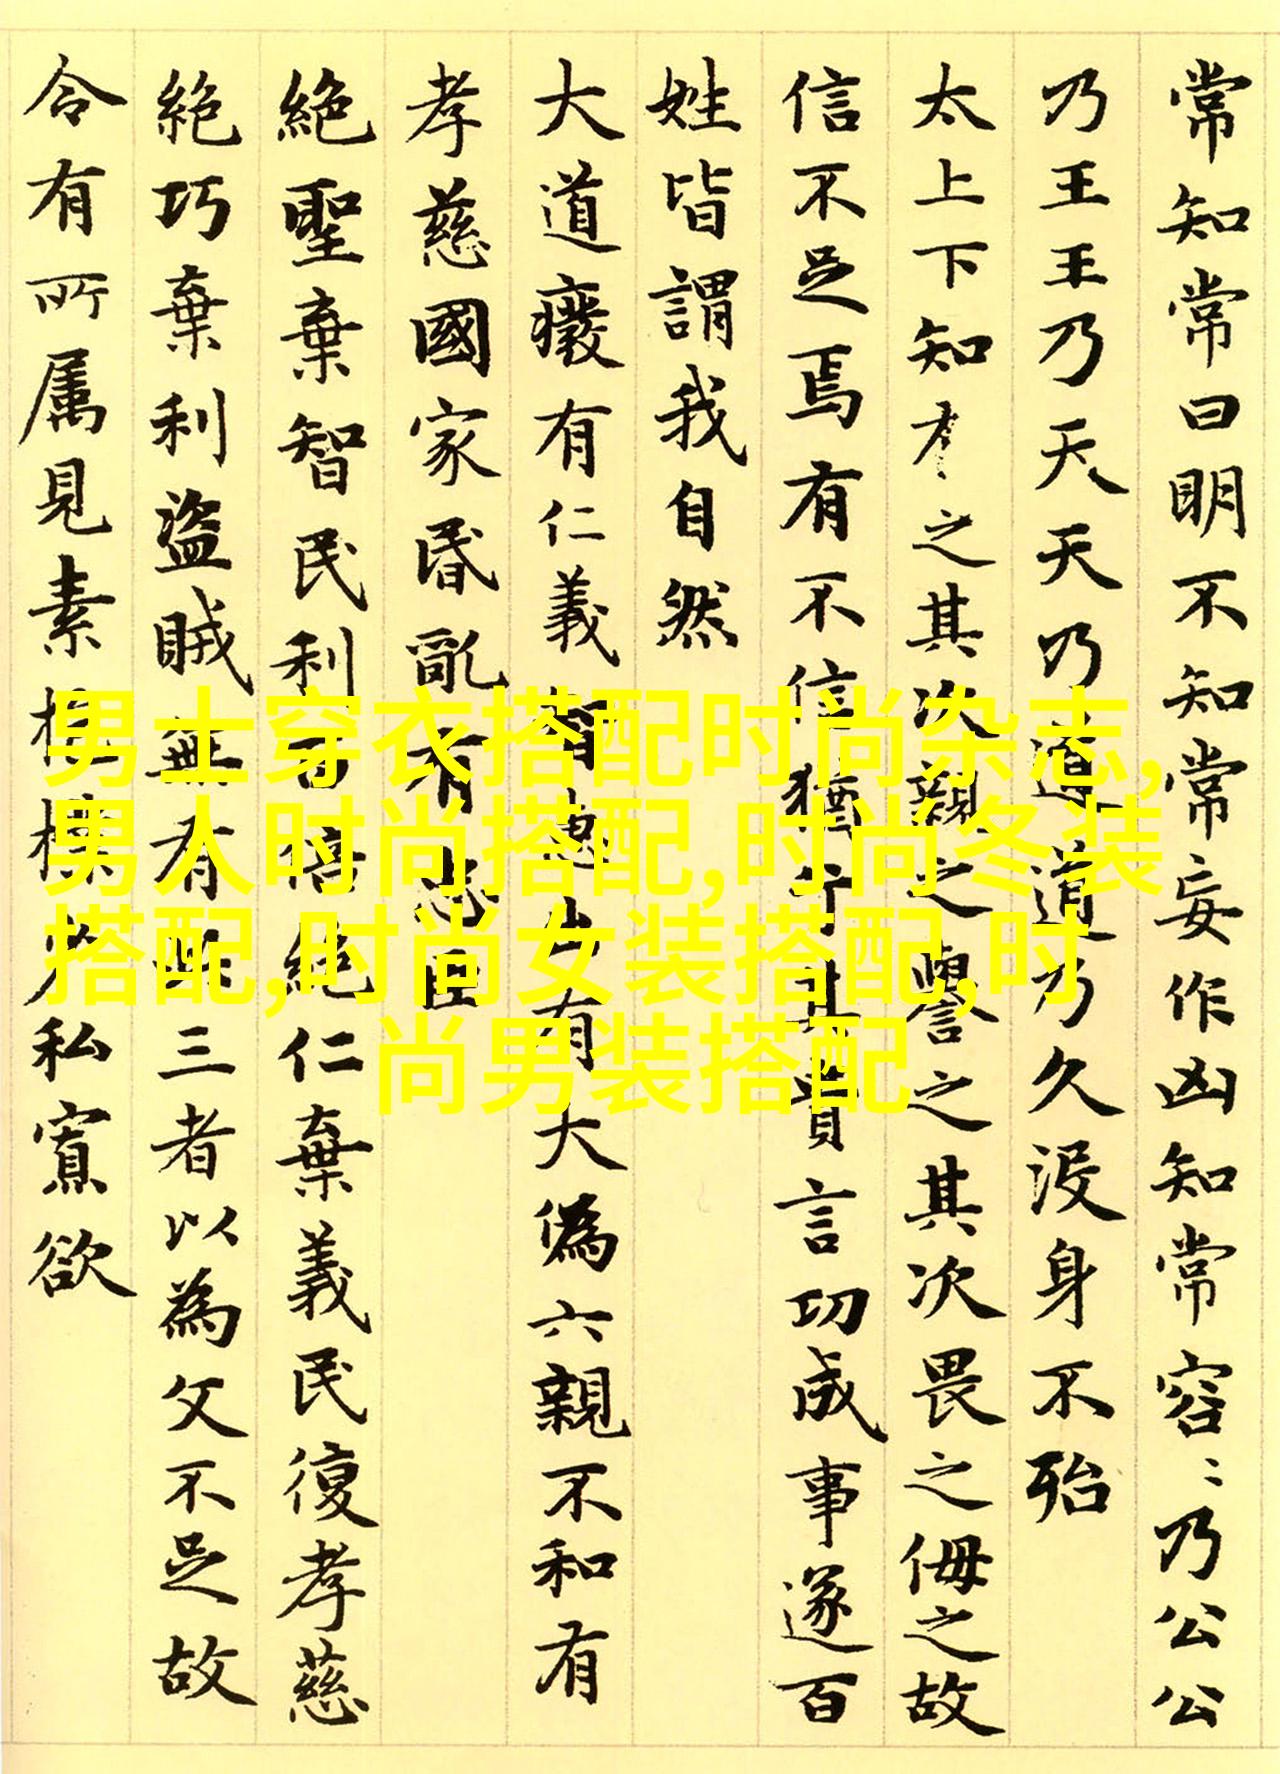 常知常曰明不知常妄作凶知常容〻乃公公
乃王王乃天天乃道道乃久没身不殆
太上下知有之其次親之譽之其次畏之侮之故
信不足焉有不信猶兮其貴言功成事遂百
姓皆謂我自然
大道癈有仁義智惠出有大偽六親不和有
孝慈國家昏亂有忠臣
絶聖棄智民利百倍絶仁棄義民復孝慈
絶巧棄利盜賊無有此三者以為文不足故
令有所属見素抱樸少私寡欲
男士穿衣搭配时尚杂志,
男人时尚搭配,时尚冬装
搭配,时尚女装搭配,时
尚男装搭配